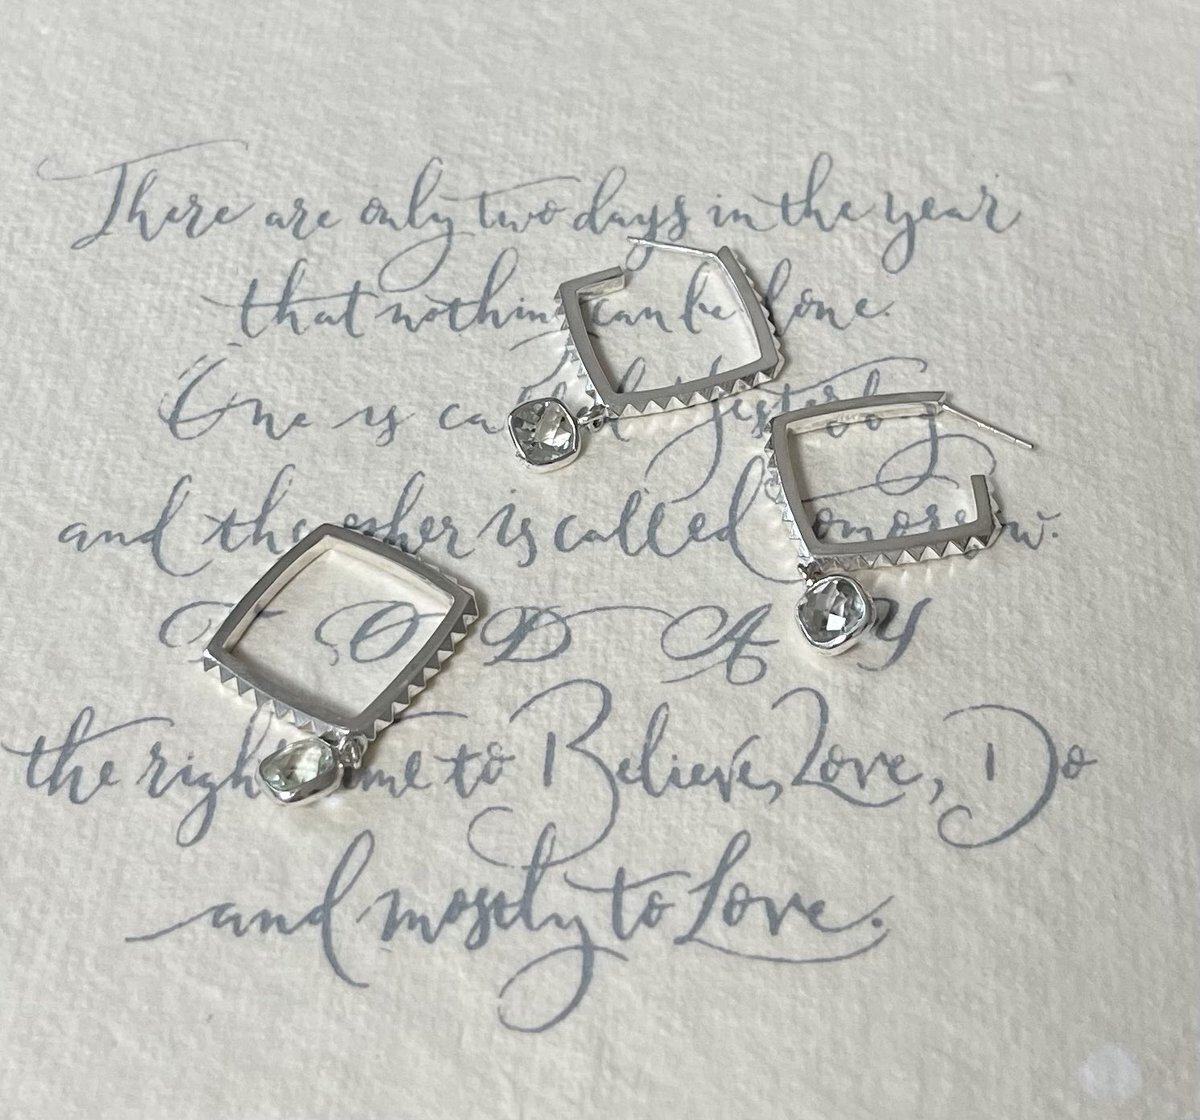 There are only two days in the year
that nothing can be done.
One is called Yesterday
and the other is called Tomorrow.
T O D A Y
the right time to Believe, Love, Do
and mostly to Love.